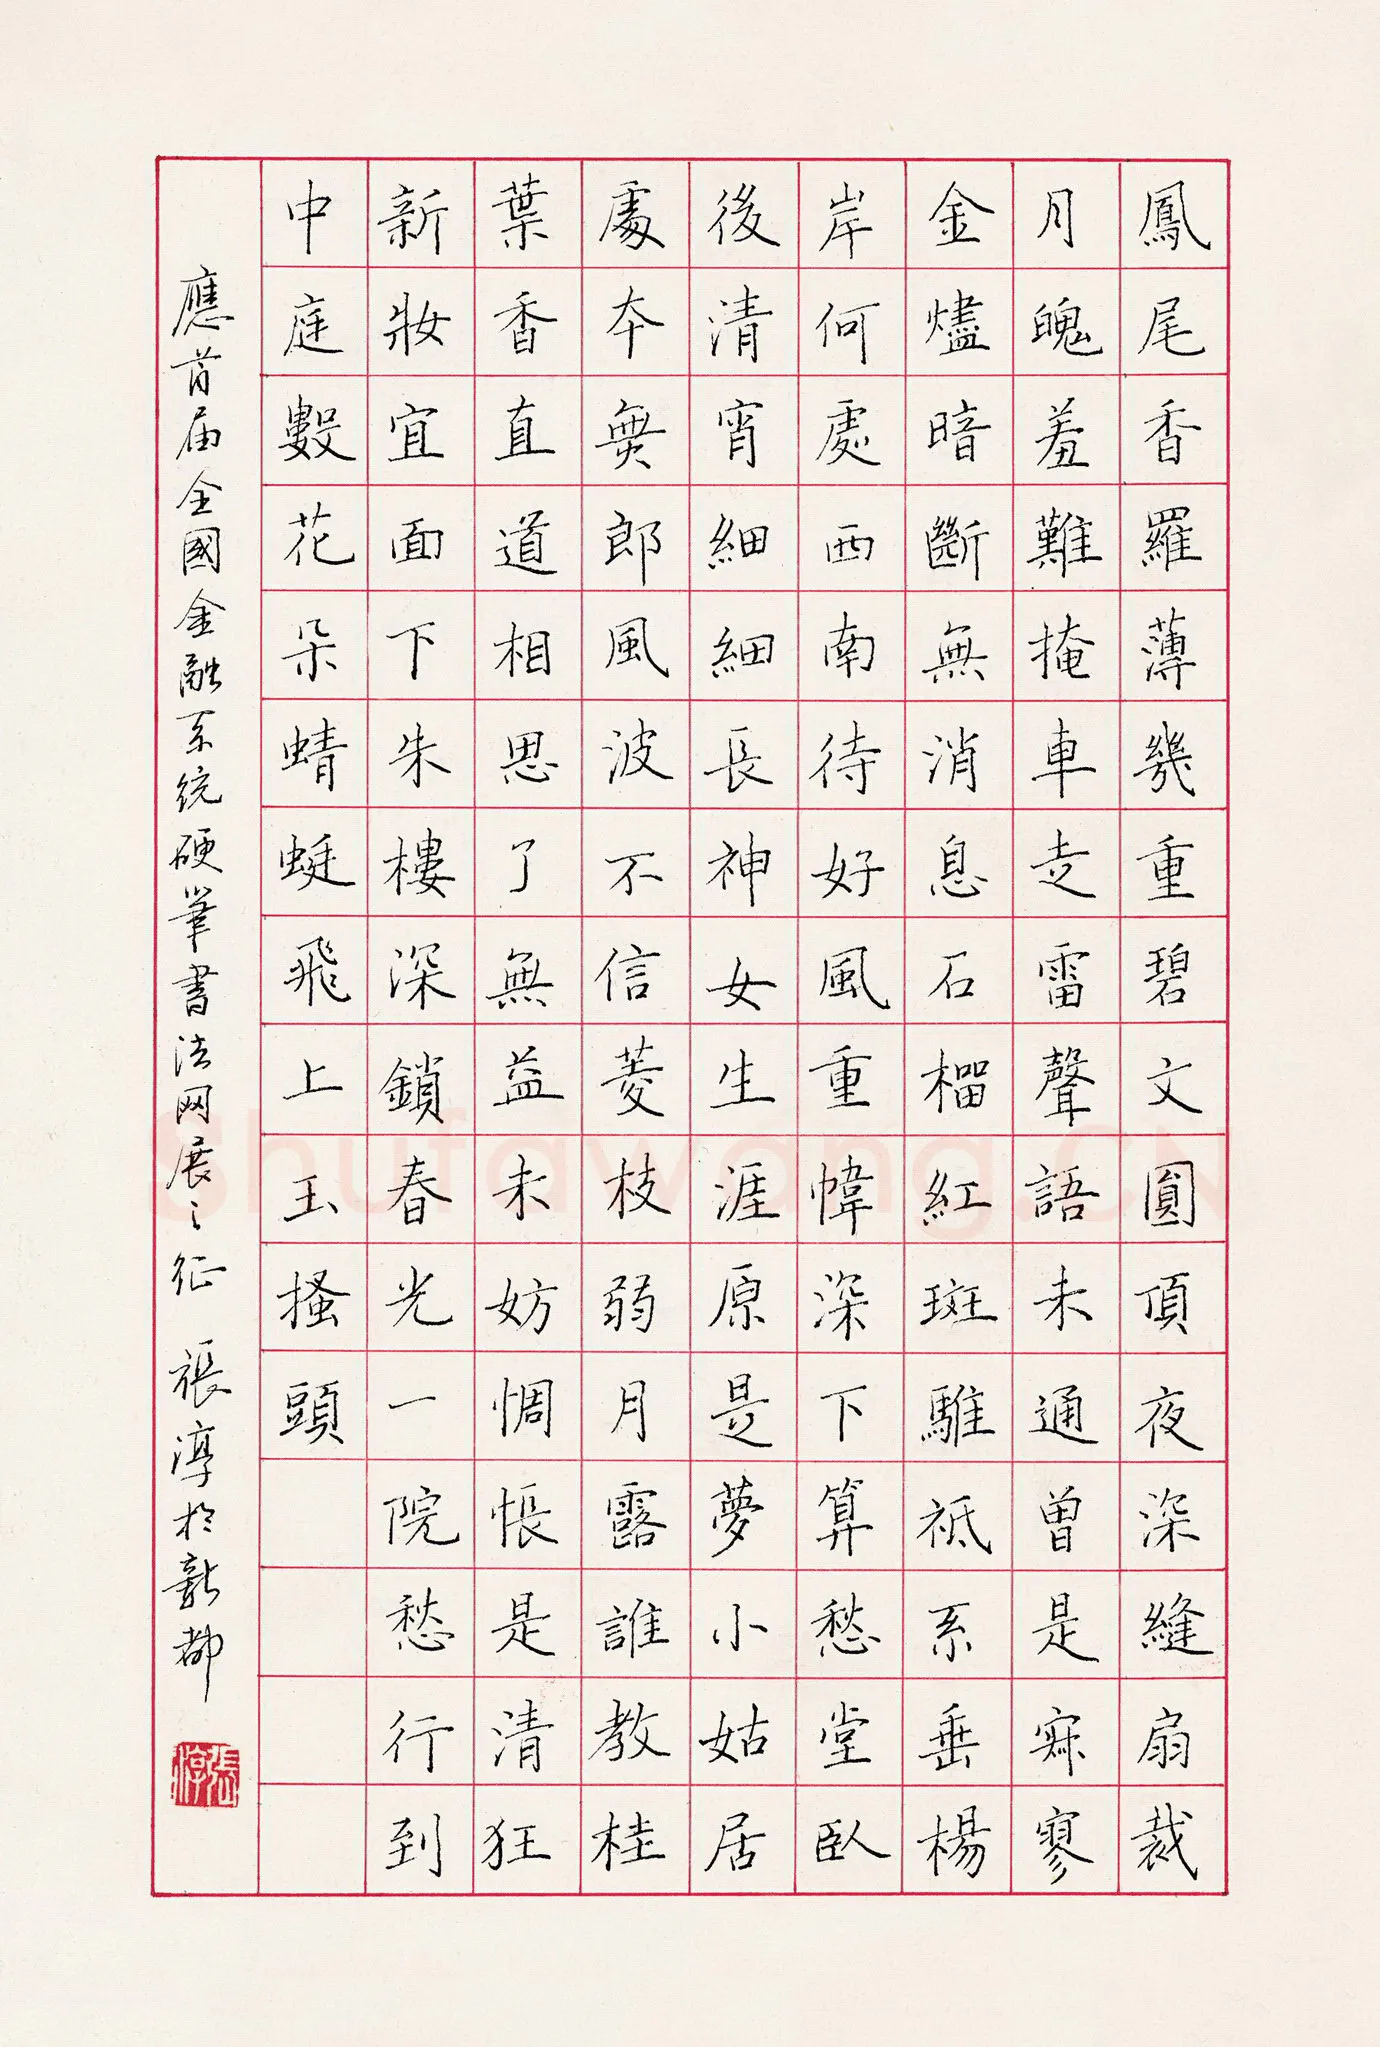 鳳尾香羅薄幾重碧文圓頂夜深縫扇裁
月魄羞難掩車走雷聲語未通曾是寂寥
金燼暗斷無消息石榴紅斑騅祗系垂楊
岸何處西南待好風重幃深下算愁堂臥
後清宵細細長神女生涯原是夢小姑居
處本無郎風波不信菱枝弱月露誰教桂
葉香直道相思了無益未妨惆悵是清狂
新妝宜面下朱樓深鎖春光一院愁行到
中庭數花朵蜻蜓飛上玉搔頭
應首届全國金融系统硬筆書法网展之征 張淳於新都
張淳
Shufawang.CN